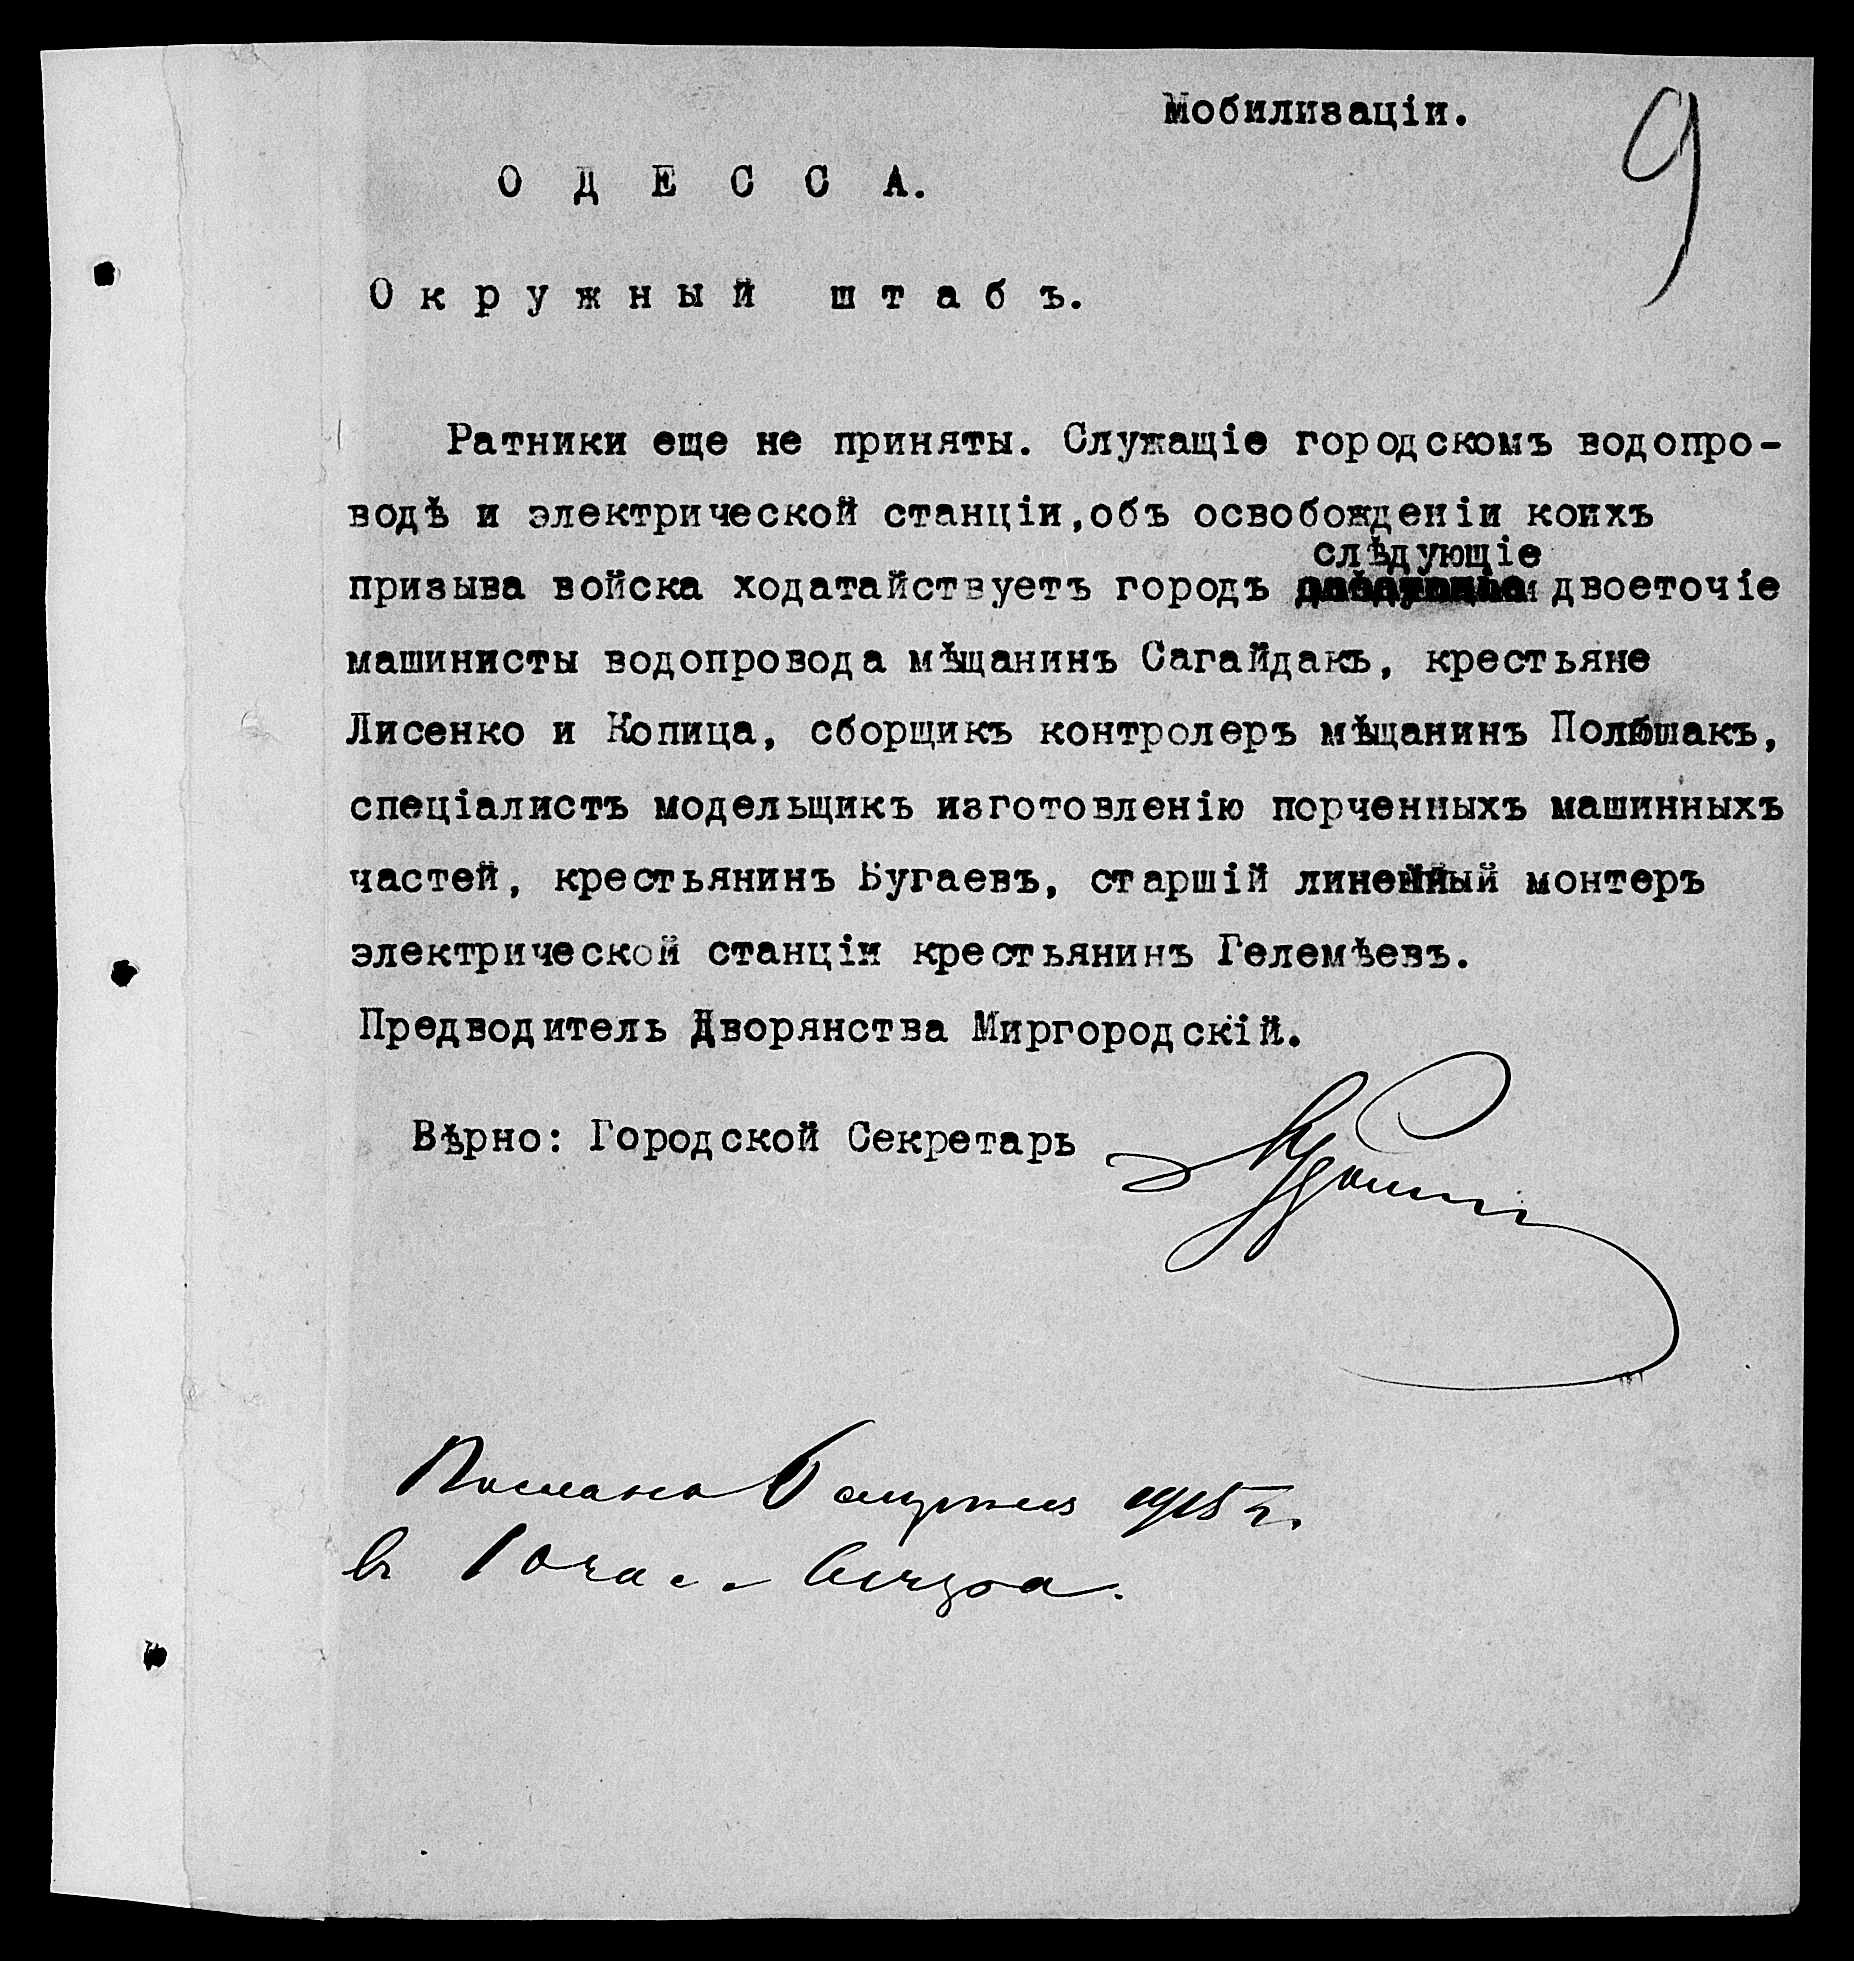 Мобилизаціи.
9
ОДЕССА.
Окружный штабъ.
Ратники еще не приняты. Служащіе городскомъ водопро-
водѣ и электрической станціи,объ освобожденіи коихъ
слѣдующіе
призыва войска ходатайствуетъ городъ двоеточіе
машинисты водопровода мѣщанинъ Сагайдакъ, крестьяне
Лисенко и Копица, сборщикъ контролеръ мѣщанинъ
спеціалистъ модельщикъ изготовленію порченныхъ машинныхъ
частей, крестьянинъ Бугаевъ, старшій линейный монтеръ
электрической станціи крестьянинъ Гелемѣевъ.
Предводитель Дворянства Миргородскій.
Вѣрно: Городской Секретарь
Послано 6 августа 1915 г.
в 10 час. вечера.